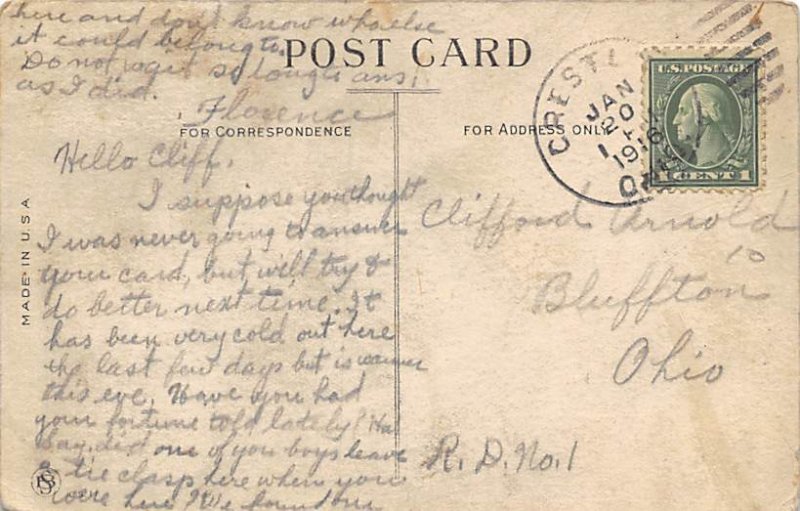 POST CARD
FOR CORRESPONDENCE
Hello Cliff.
I suppose you thought
I was never going to answer
your card, but will try &
do better next time. It
has been very cold out here
the last few days but is warmer
this eve. Have you had
your fortune told lately? Ha
Say, did one of you boys leave
a tie clasp here when you
were here? We found one
here and don't know who else
it could belong to.
Do not wait so long to ans,
as I did.
Florence
FOR ADDRESS ONLY
Clifford Arnold
Bluffton
Ohio
R. D. No. 1
CRESTL
JAN
20
1
1916
U.S. POSTAGE
1 CENT 1
MADE IN U.S.A